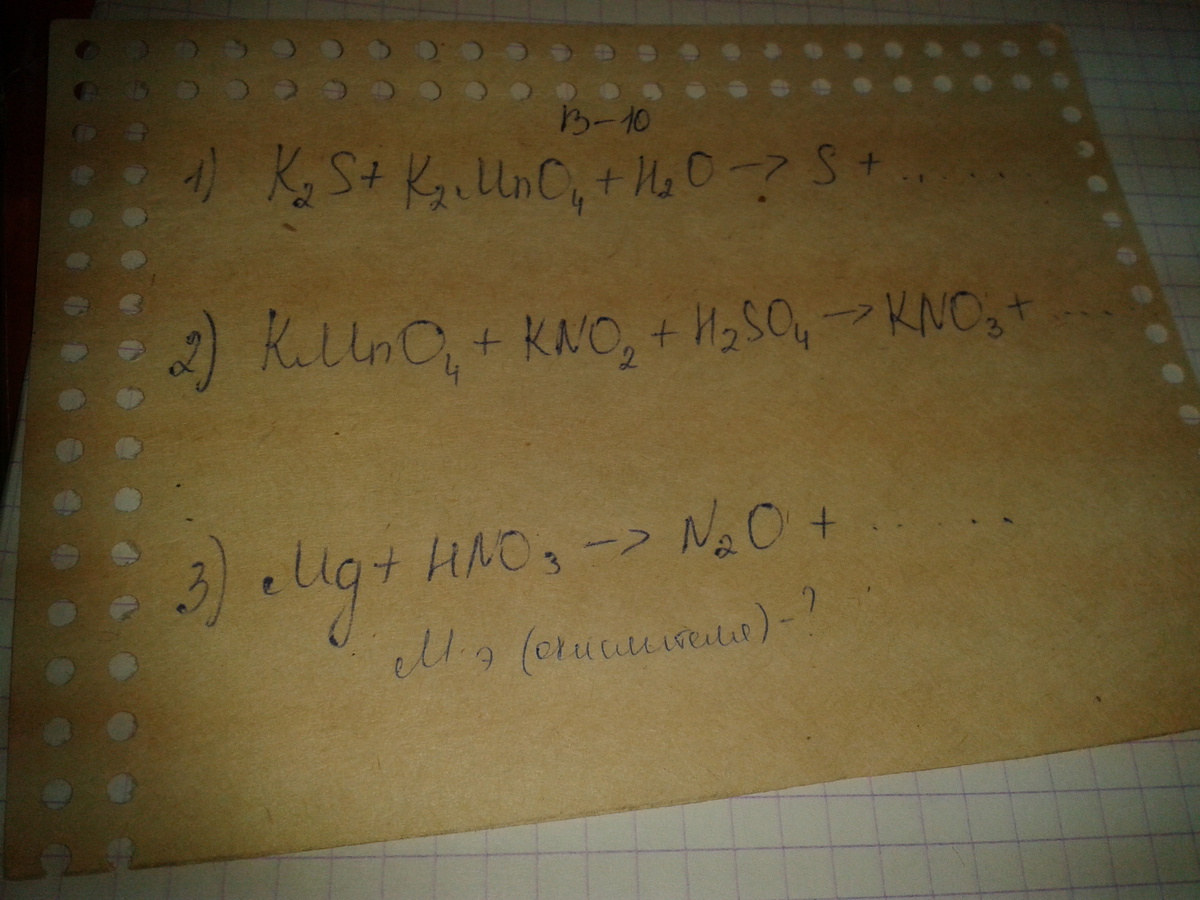 В-10
1) K₂S + K₂MnO₄ + H₂O → S + ......
2) KMnO₄ + KNO₂ + H₂SO₄ → KNO₃ + ....
3) Mg + HNO₃ → N₂O + ......
М э (окислителя) - ?